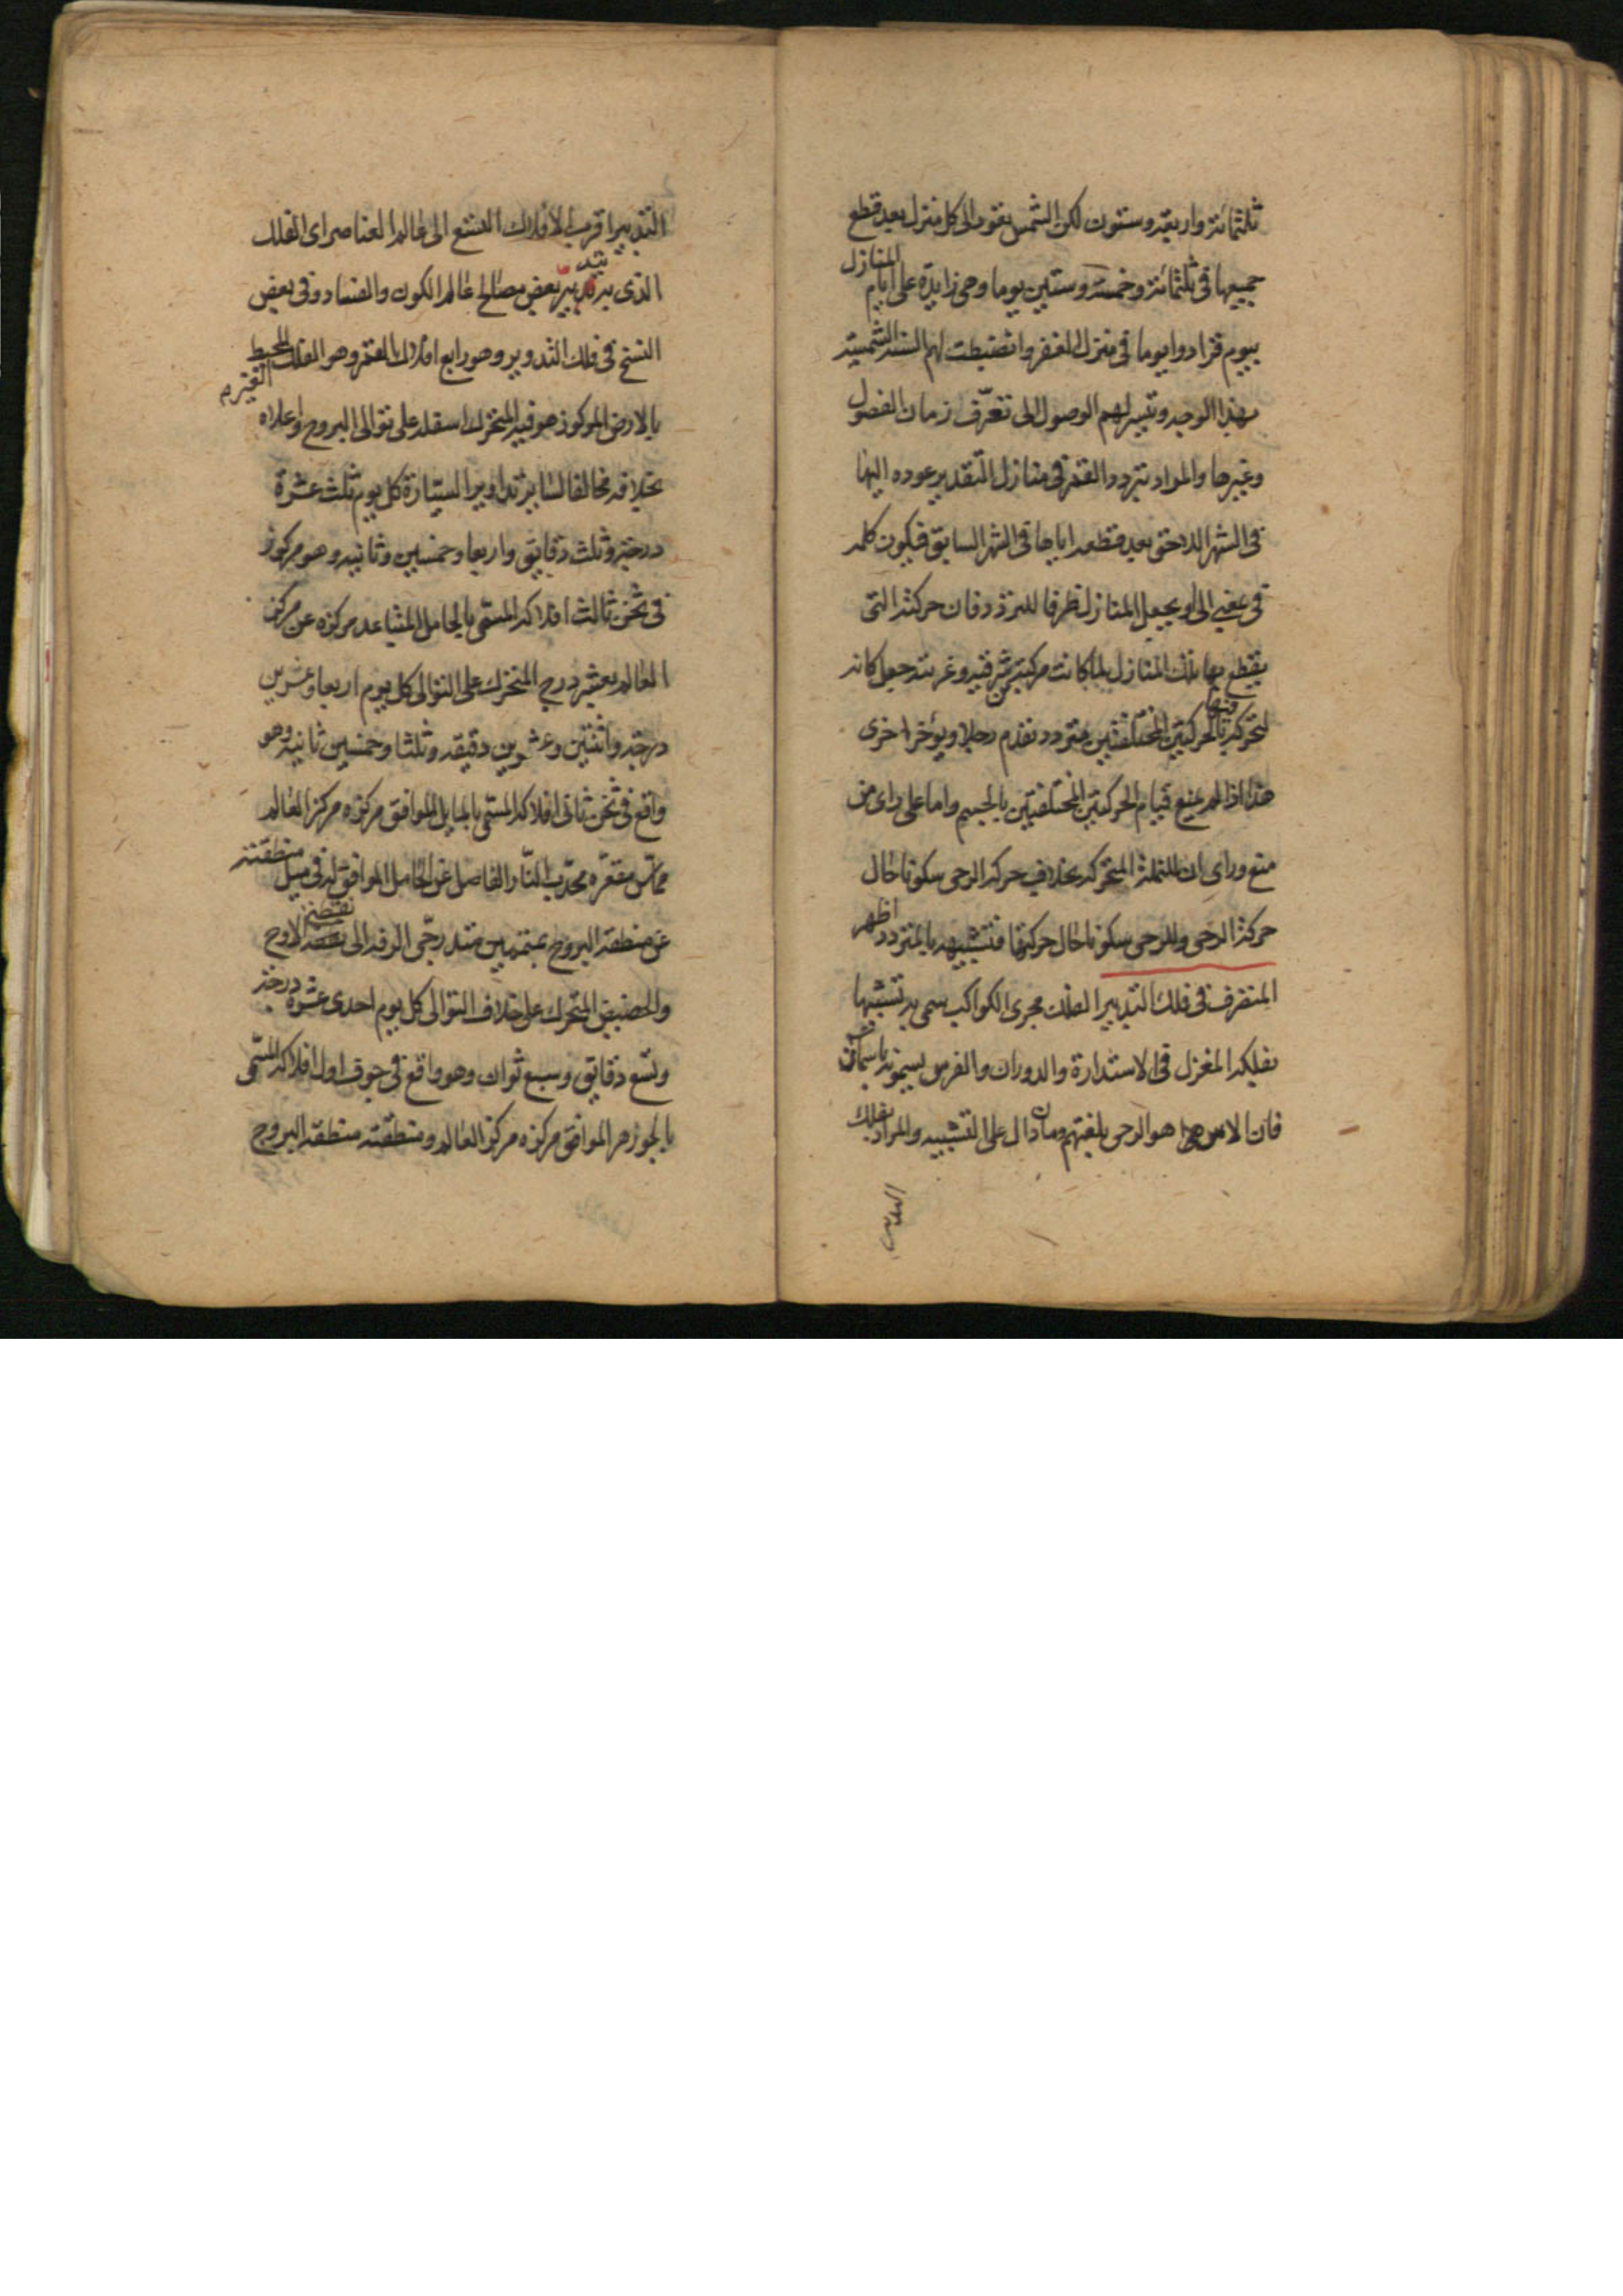 ثلثمائة واربعة وستون لكن الشمس تعود الى كل منزل بعد قطع
جميعها في ثلثمائة وخمسة وستين يوما وهي زايدة على ايام المنازل
بيوم فزادوا يوما في منزل الغفر وانضبطت لهم السنة الشمسية
بهذا الوجه وتيسر لهم الوصول الى تعرف زمان الفصول
وغيرها والمراد بتردد القمر في منازل التقدير عوده اليها
في الشهر اللاحق بعد قطعه اياها في الشهر السابق فيكون كلمة
في بمعنى الى او يجعل المنازل ظرفا للتردد فان حركته التي
يقطع بها تلك المنازل لما كانت مركبة من شرقية وغربية جعل كانه
لتحركه فيها بالحركتين المختلفتين متردد تقدم رجلا ويؤخر اخرى
هذا اذا لم يمنع قيام الحركتين المختلفتين بالجسم واما على راى من
منع وراى ان للنملة المتحركة بخلاف حركة الرحى سكونا حال
حركة الرحى وللرحى سكونا حال حركتها فتشبيهه بالمتردد اظهر
المتصرف في فلك التدبير الفلك مجرى الكواكب سمى به تشبيها
بفلكة المغزل في الاستدارة والدوران والفرس يسمونه باسمان
فان الاس هو الرحى بلغتهم ومان دال على التشبيه والمراد بفلك
التدبير اقرب الافلاك التسع الى عالم العناصر اى الفلك
الذى به تدبير بعض مصالح عالم الكون والفساد وفي بعض
النسخ في فلك التدوير وهو رابع افلاك القمر وهو الفلك الغير المحيط
بالارض المركوز هو فيه المتحرك اسفله على توالى البروج واعلاه
بخلافه مخالفا لساير تداوير السيارة كل يوم ثلث عشرة
درجة وثلث دقايق واربعا وخمسين وثانية وهو مركوز
في ثخن ثالث افلاكه المسمى بالحامل المتباعد مركزه عن مركز
العالم بعشر درج المتحرك على التوالى كل يوم اربعا وعشرين
درجة واثنتين وعشرين دقيقة وثلثا وخمسين ثانية وهو
واقع في ثخن ثاني افلاكه المسمى بالمايل الموافق مركزه مركز العالم
مماس مقعره محدب النار الفاصل عن الحامل الموافق له في ميل منطقته
عن منطقة البروج بمتممين متدرجي الرقة الى نقطتي الاوج
والحضيض المتحرك على خلاف التوالى كل يوم احدى عشرة درجة
وتسع دقايق وسبع ثوان وهو واقع في جوف اول افلاكه المسمى
بالجوزهر الموافق مركزه مركز العالم ومنطقته منطقة البروج